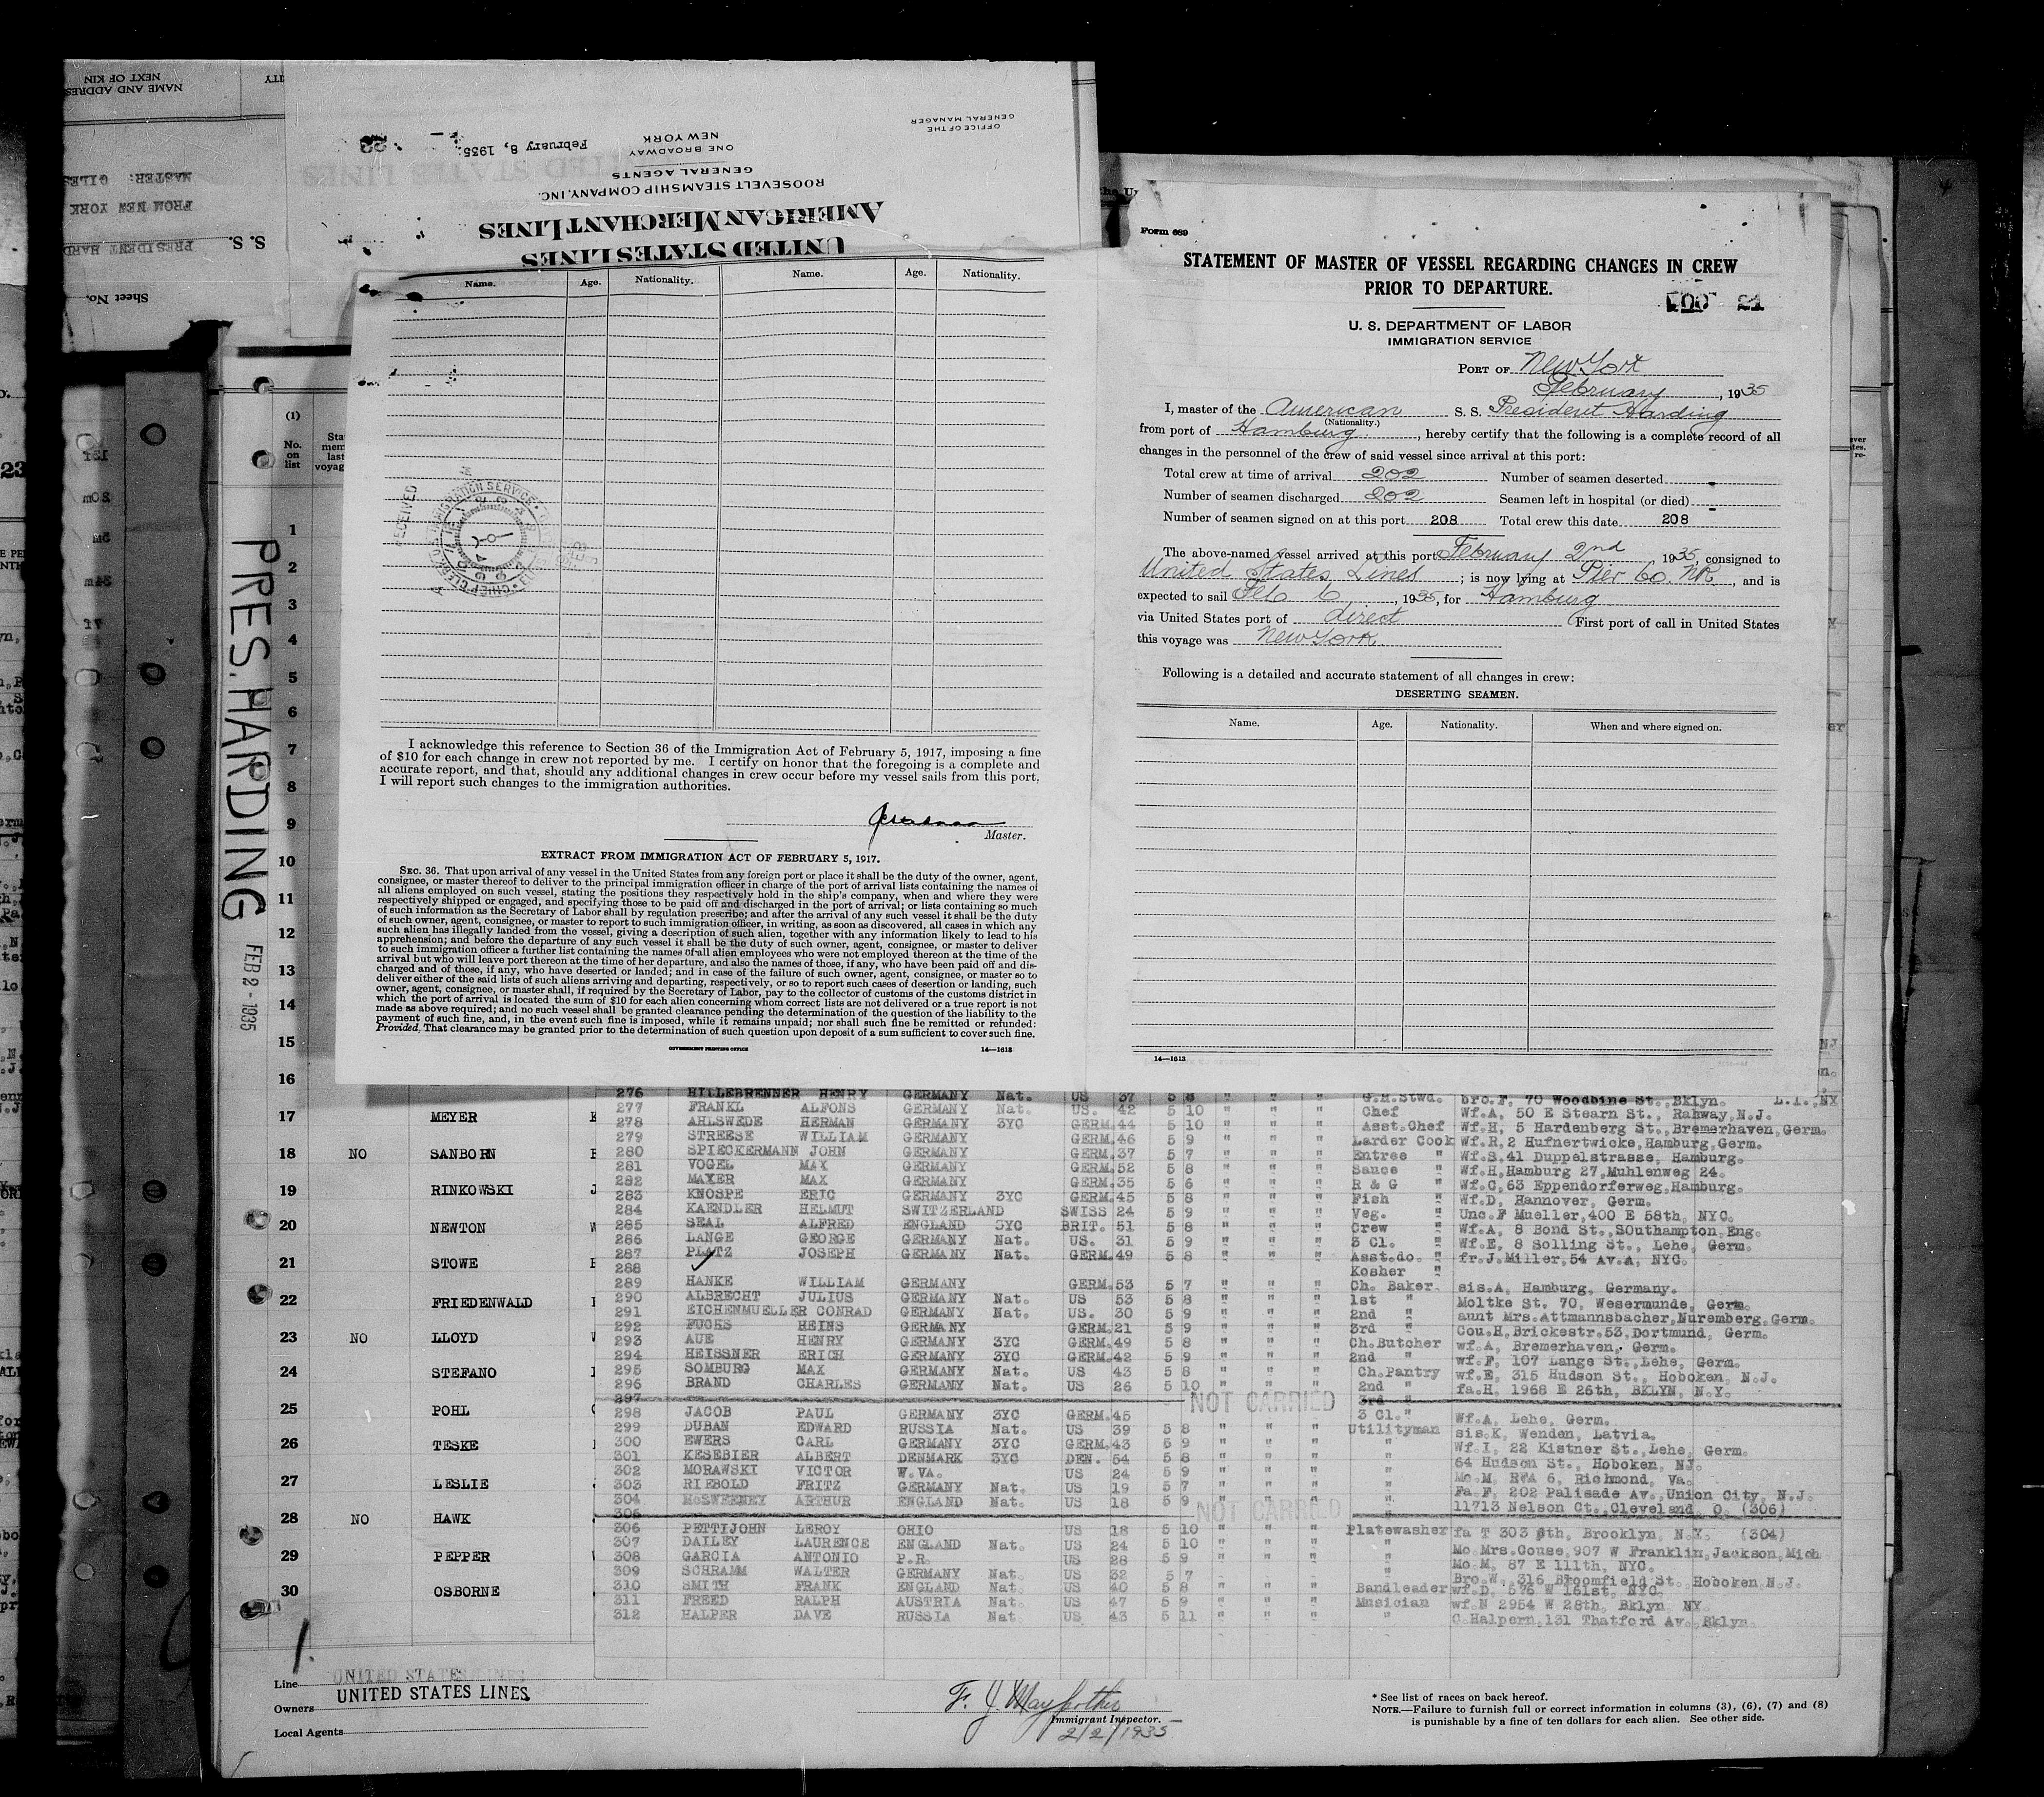 NAME AND ADDRESS
NEXT OF KIN
MASTER: GILES
FROM NEW YORK
PRESIDENT HARD
S. S.
Sheet No.
OFFICE OF THE
GENERAL MANAGER
February 8, 1935.
NEW YORK
ONE BROADWAY
GENERAL AGENTS
ROOSEVELT STEAMSHIP COMPANY, INC.
AMERICAN MERCHANT LINES
UNITED STATES LINES
Name. Age. Nationality. Name. Age. Nationality.
RECEIVED
IMMIGRATION SERVICE
I acknowledge this reference to Section 36 of the Immigration Act of February 5, 1917, imposing a fine
of $10 for each change in crew not reported by me. I certify on honor that the foregoing is a complete and
accurate report, and that, should any additional changes in crew occur before my vessel sails from this port,
I will report such changes to the immigration authorities.
Master.
EXTRACT FROM IMMIGRATION ACT OF FEBRUARY 5, 1917.
SEC. 36. That upon arrival of any vessel in the United States from any foreign port or place it shall be the duty of the owner, agent,
consignee, or master thereof to deliver to the principal immigration officer in charge of the port of arrival lists containing the names of
all aliens employed on such vessel, stating the positions they respectively hold in the ship's company, when and where they were
respectively shipped or engaged, and specifying those to be paid off and discharged in the port of arrival; or lists containing so much
of such information as the Secretary of Labor shall by regulation prescribe; and after the arrival of any such vessel it shall be the duty
of such owner, agent, consignee, or master to report to such immigration officer, in writing, as soon as discovered, all cases in which any
such alien has illegally landed from the vessel, giving a description of such alien, together with any information likely to lead to his
apprehension; and before the departure of any such vessel it shall be the duty of such owner, agent, consignee, or master to deliver
to such immigration officer a further list containing the names of all alien employees who were not employed thereon at the time of the
arrival but who will leave port thereon at the time of her departure, and also the names of those, if any, who have been paid off and dis-
charged and of those, if any, who have deserted or landed; and in case of the failure of such owner, agent, consignee, or master so to
deliver either of the said lists of such aliens arriving and departing, respectively, or so to report such cases of desertion or landing, such
owner, agent, consignee, or master shall, if required by the Secretary of Labor, pay to the collector of customs of the customs district in
which the port of arrival is located the sum of $10 for each alien concerning whom correct lists are not delivered or a true report is not
made as above required; and no such vessel shall be granted clearance pending the determination of the question of the liability to the
payment of such fine, and, in the event such fine is imposed, while it remains unpaid; nor shall such fine be remitted or refunded:
Provided, That clearance may be granted prior to the determination of such question upon deposit of a sum sufficient to cover such fine.
GOVERNMENT PRINTING OFFICE 14—1613
Form 689
STATEMENT OF MASTER OF VESSEL REGARDING CHANGES IN CREW
PRIOR TO DEPARTURE.
21
U. S. DEPARTMENT OF LABOR
IMMIGRATION SERVICE
PORT OF New York
February, 1935
I, master of the American S. S. President Harding
(Nationality.)
from port of Hamburg, hereby certify that the following is a complete record of all
changes in the personnel of the crew of said vessel since arrival at this port:
Total crew at time of arrival 202 Number of seamen deserted -
Number of seamen discharged 202 Seamen left in hospital (or died) -
Number of seamen signed on at this port 208 Total crew this date 208
The above-named vessel arrived at this port February 2nd 1935, consigned to
United States Lines; is now lying at Pier 60 NR, and is
expected to sail Feb 6, 1935, for Hamburg
via United States port of direct (First port of call in United States
this voyage was New York.
Following is a detailed and accurate statement of all changes in crew:
DESERTING SEAMEN.
Name. Age. Nationality. When and where signed on.
14—1613
PRES. HARDING
FEB 2 - 1935
(1)
No. on list
1
2
3
4
5
6
7
8
9
10
11
12
13
14
15
16
17 MEYER
18 NO SANBORN
19 RINKOWSKI
20 NEWTON
21 STOWE
22 FRIEDENWALD
23 NO LLOYD
24 STEFANO
25 POHL
26 TESKE
27 LESLIE
28 NO HAWK
29 PEPPER
30 OSBORNE
276 HILLEBRENNER HENRY GERMANY Nat. US 37 5 8 " " " G.H.Stwd. bro.F, 70 Woodbine St., Bklyn. L.I.,NY
277 FRANKL ALFONS GERMANY Nat. US. 42 5 10 " " " Chef Wf.A, 50 E Stearn St., Rahway,N.J.
278 AHLSWEDE HERMAN GERMANY 3YC GERM.44 5 10 " " " Asst.Chef Wf.H, 5 Hardenberg St.,Bremerhaven,Germ.
279 STREESE WILLIAM GERMANY GERM.46 5 9 " " " Larder Cook Wf.R,2 Hufnertwicke,Hamburg,Germ.
280 SPIECKERMANN JOHN GERMANY GERM.37 5 7 " " " Entree " Wf.S,41 Duppelstrasse, Hamburg.
281 VOGEL MAX GERMANY GERM.52 5 8 " " " Sauce " Wf.H,Hamburg 27,Muhlenweg 24.
282 MAYER MAX GERMANY GERM.35 5 6 " " " R & G " Wf.C,63 Eppendorferweg,Hamburg.
283 KNOSPE ERIC GERMANY 3YC GERM.45 5 8 " " " Fish " Wf.D, Hannover, Germ.
284 KAENDLER HELMUT SWITZERLAND SWISS 24 5 9 " " " Veg. " Unc.F Mueller,400 E 58th, NYC.
285 SEAL ALFRED ENGLAND 3YC BRIT. 51 5 8 " " " Crew " Wf.A, 8 Bond St.,SOuthampton,Eng.
286 LANGE GEORGE GERMANY Nat. US. 31 5 9 " " " 3 Cl. " Wf.E, 8 Solling St., Lehe, Germ.
287 PLATZ JOSEPH GERMANY Nat. GERM.49 5 8 " " " Asst.do. " fr.J.Miller,54 Av.A, NYC.
288 Kosher "
289 HANKE WILLIAM GERMANY GERM.53 5 7 " " " Ch. Baker. sis.A, Hamburg, Germany.
290 ALBRECHT JULIUS GERMANY Nat. US 53 5 8 " " " 1st " Moltke St. 70, Wesermunde, Germ.
291 EICHENMUELLER CONRAD GERMANY Nat. US. 30 5 9 " " " 2nd " aunt Mrs.Attmannsbacher,Nuremberg,Germ.
292 FUCHS HEINS GERMANY GERM.21 5 9 " " " 3rd " Cou.H,Brickestr.53,Dortmund, Germ.
293 AUE HENRY GERMANY 3YC GERM.49 5 8 " " " Ch.Butcher wf.A, Bremerhaven, Germ.
294 HEISSNER ERICH GERMANY 3YC GERM.42 5 9 " " " 2nd " wf.F, 107 Lange St.,Lehe, Germ.
295 SOMBURG MAX GERMANY Nat. US 43 5 8 " " " Ch.Pantry wf.E, 315 Hudson St., Hoboken, N.J.
296 BRAND CHARLES GERMANY Nat. US 26 5 10 " " " 2nd " fa.H, 1968 E 26th, BKLYN, N.Y.
297 NOT CARRIED 3rd "
298 JACOB PAUL GERMANY 3YC GERM.45 3 Cl." Wf.A, Lehe, Germ.
299 DUBAN EDWARD RUSSIA Nat. US 39 5 8 " " " Utilityman sis.K, Wenden, Latvia.
300 EWERS CARL GERMANY 3YC GERM.43 5 9 " " " " Wf.I, 22 Kistner St.,Lehe, Germ.
301 KESEBIER ALBERT DENMARK 3YC DEN. 54 5 8 " " " " 64 Hudson St., Hoboken, NJ.
302 MORAWSKI VICTOR W.VA. US 24 5 9 " " " " Mo.M, R#A 6, Richmond, Va.
303 RIEBOLD FRITZ GERMANY Nat. US 19 5 7 " " " " Fa.F, 202 Palisade Av.,Union City, N.J.
304 McSWEENEY ARTHUR ENGLAND Nat. US 18 5 9 " " " " 11713 Nelson Ct.,Cleveland, O. (306)
305 NOT CARRIED
306 PETTIJOHN LEROY OHIO US 18 5 10 " " " Platewasher fa T 303 8th, Brooklyn, N.Y. (304)
307 DAILEY LAURENCE ENGLAND Nat. US 24 5 10 " " " " Mo.Mrs.Couse,907 W Franklin,Jackson,Mich
308 GARCIA ANTONIO P.R. US 28 5 9 " " " " Mo.M, 87 E 111th, NYC.
309 SCHRAMM WALTER GERMANY Nat. US 32 5 7 " Bro.W, 316 Broomfield St. Hoboken,N.J.
310 SMITH FRANK ENGLAND Nat. US 40 5 8 " " " Bandleader wf.D, 576 W 161st, NYC.
311 FREED RALPH AUSTRIA Nat. US 47 5 9 " " " Musician wf.N 2954 W 28th, Bklyn NY.
312 HALPER DAVE RUSSIA Nat. US 43 5 11 " " " " C.Halpern,131 Thatford Av.,Bklyn.
Line UNITED STATES LINES
Owners UNITED STATES LINES
Local Agents
F. J. Mayforther
Immigrant Inspector.
2/2/1935
* See list of races on back hereof.
NOTE.—Failure to furnish full or correct information in columns (3), (6), (7) and (8)
is punishable by a fine of ten dollars for each alien. See other side.